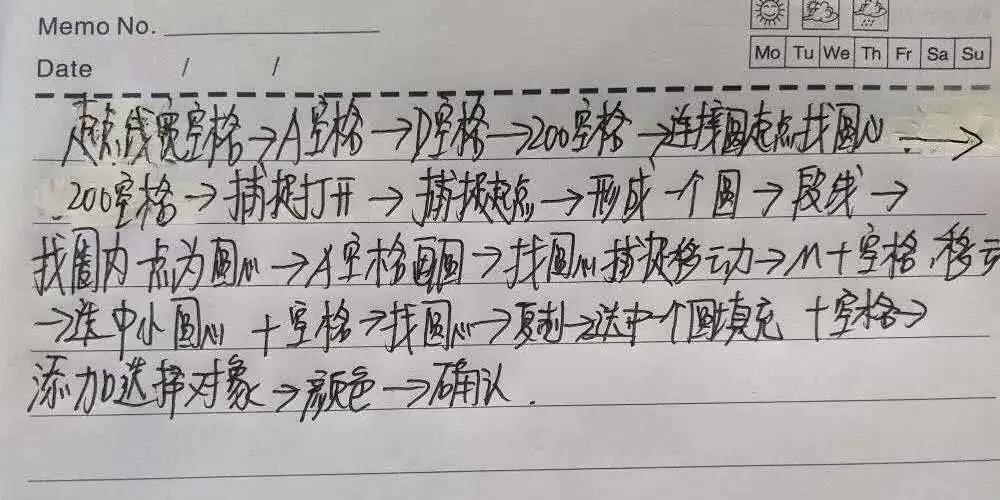 Memo No.
Mo Tu We Th Fr Sa Su
Date / /
起点线宽空格→A空格→D空格→200空格→连接圆起点找圆心→
200空格→捕捉打开→捕捉起点→形成一个圆→段线→
找圈内一点为圆心→A空格画圆→找圆心捕捉移动→M+空格,移动
→选中小圆心+空格→找圆心→复制→选中一个圆填充+空格→
添加选择对象→颜色→确认.